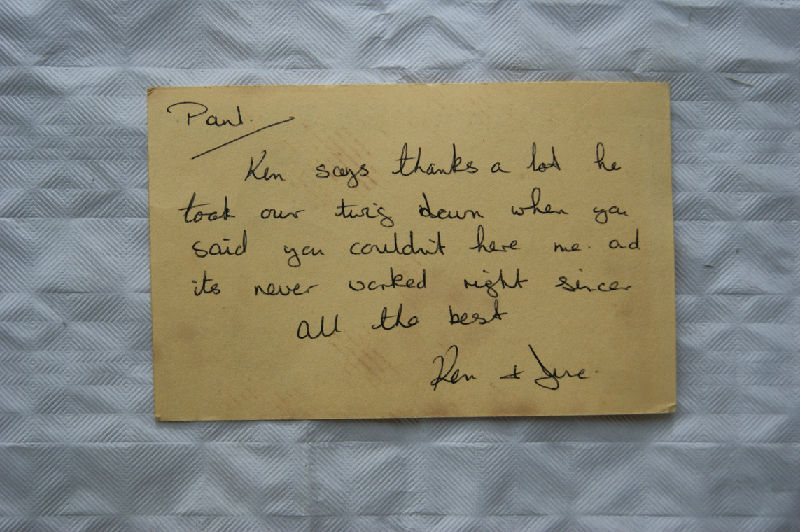 Paul.
Ken says thanks a lot he
took our twig down when you
said you couldn't here me. ad
its never worked right since.
all the best
Ken + June.